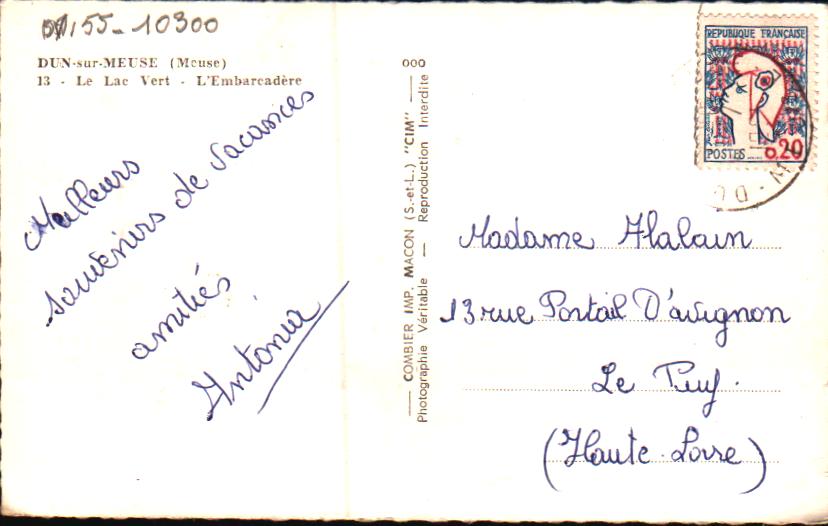 55-10300
DUN-sur-MEUSE (Meuse)
13 - Le Lac Vert - L'Embarcadère
Meilleurs
souvenirs de vacances
amitiés
Antonia
COMBIER IMP. MACON (S.-et-L.) "CIM"
Photographie Véritable — Reproduction Interdite
REPUBLIQUE FRANÇAISE
POSTES 0.20
Madame Halain
13 rue Portail D'avignon
Le Puy.
(Haute-Loire)